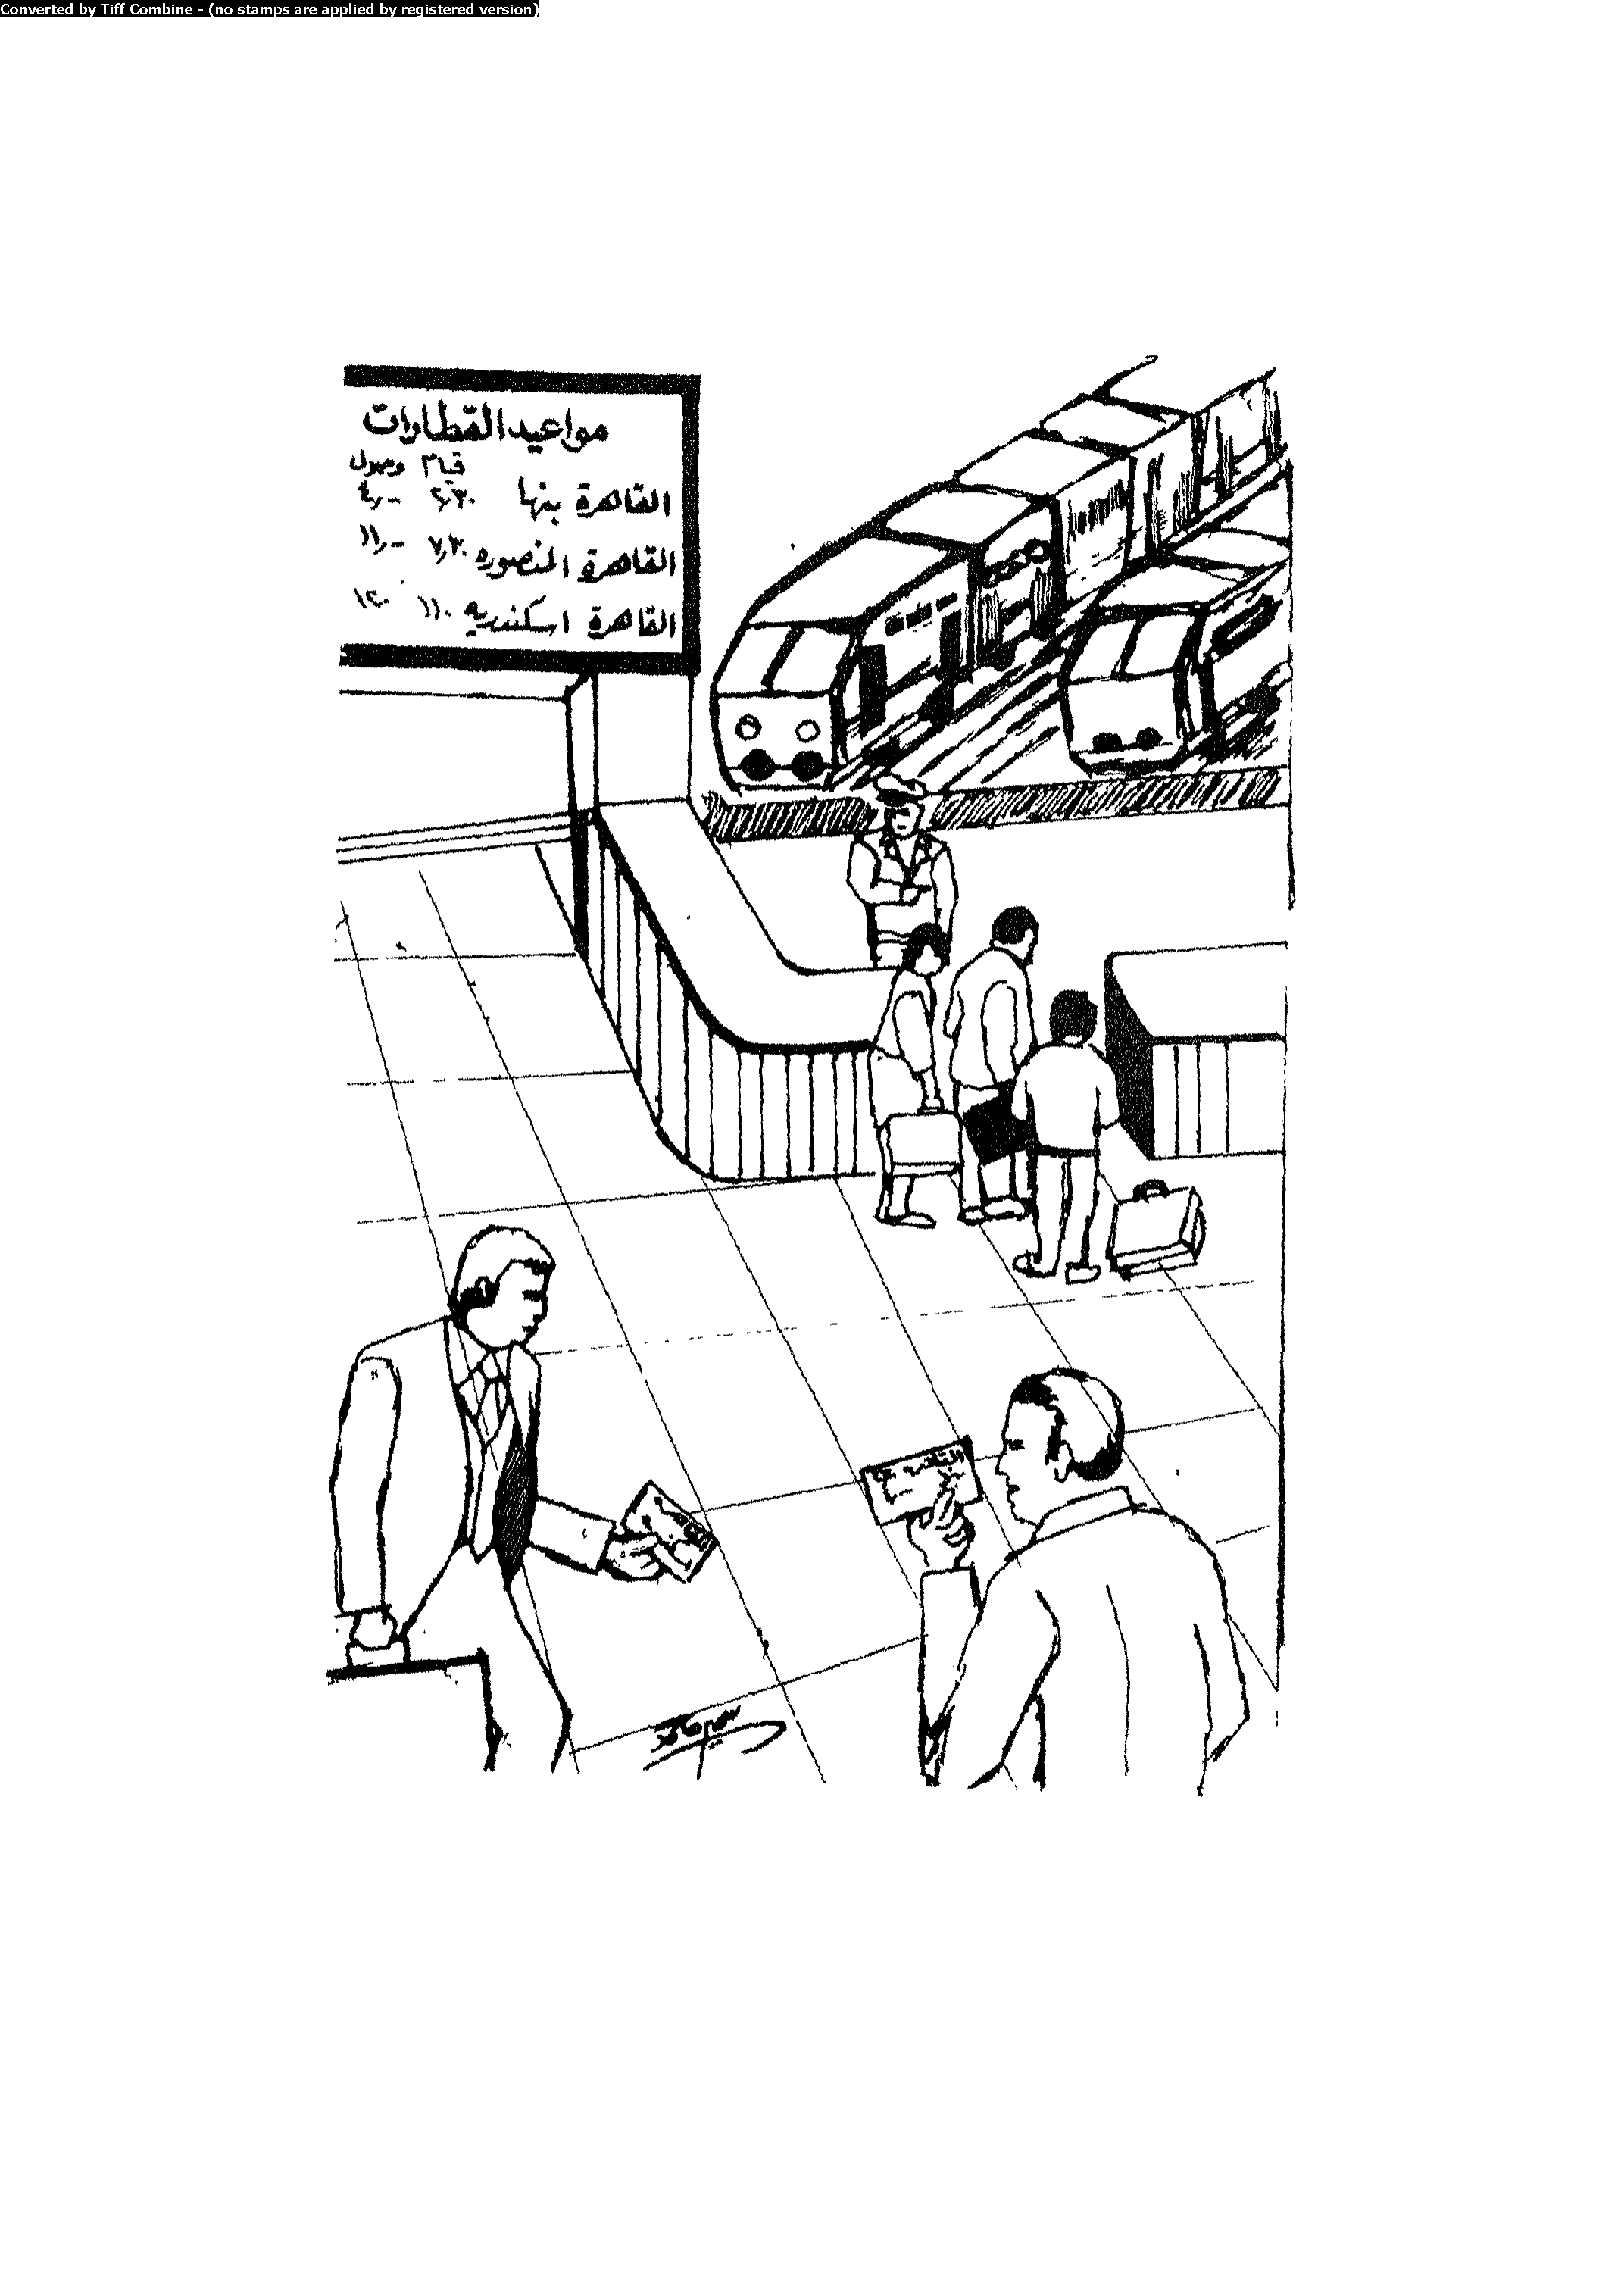 Converted by Tiff Combine - (no stamps are applied by registered version)
مواعيد القطارات
قيام وصول
القاهرة بنها ٢,٣٠ ٤,-
القاهرة المنصوره ٧,٣٠ ١١,-
القاهرة اسكندريه ١١٠ ١٢٠
القاهره
سمير حامد